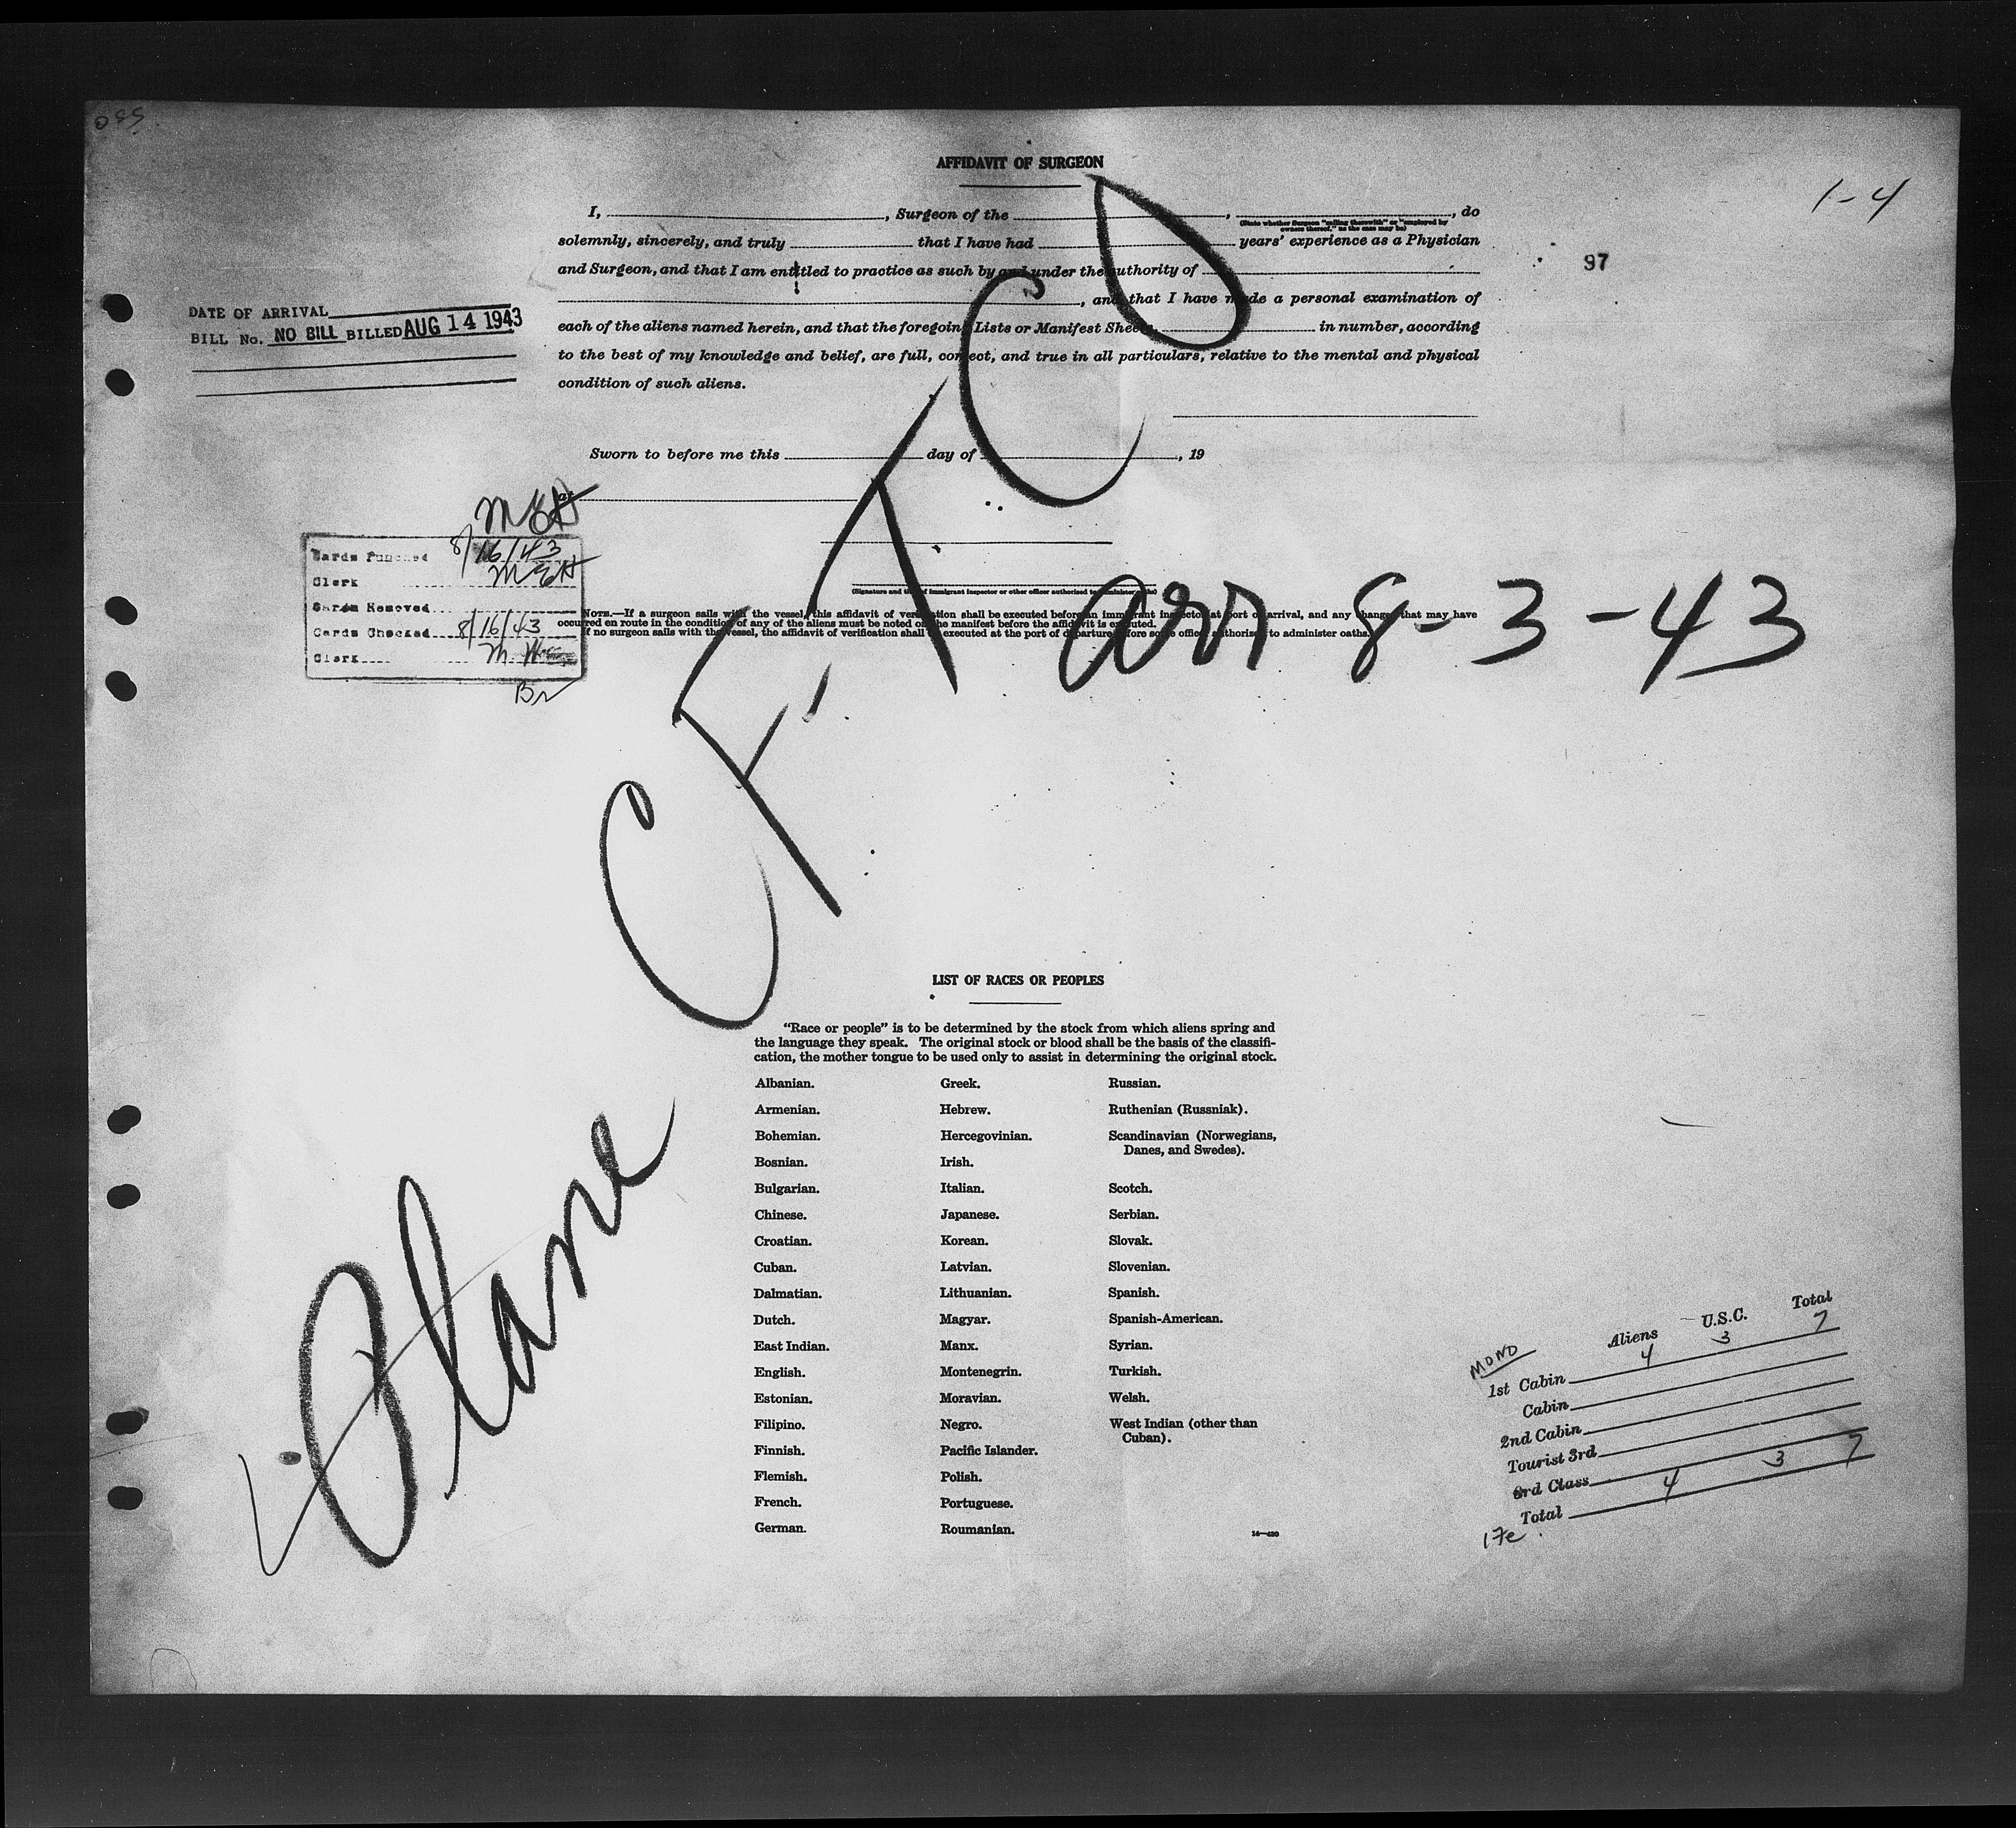 AFFIDAVIT OF SURGEON
1-4
I, , Surgeon of the , , do
(State whether Surgeon "sailing therewith" or "employed by
owners thereof," as the case may be)
solemnly, sincerely, and truly that I have had years' experience as a Physician
and Surgeon, and that I am entitled to practice as such by and under the authority of
97
, and that I have made a personal examination of
each of the aliens named herein, and that the foregoing Lists or Manifest Sheets, in number, according
to the best of my knowledge and belief, are full, correct, and true in all particulars, relative to the mental and physical
condition of such aliens.
DATE OF ARRIVAL
BILL No. NO BILL BILLED AUG 14 1943
Sworn to before me this day of , 19
MEH
Cards Punched 8/16/43
Clerk MEH
Cards Removed
Cards Checked 8/16/43
Clerk
(Signature and title of immigrant inspector or other officer authorized to administer oaths)
NOTE.—If a surgeon sails with the vessel, this affidavit of verification shall be executed before an immigrant inspector at port of arrival, and any changes that may have
occurred en route in the condition of any of the aliens must be noted on the manifest before the affidavit is executed.
If no surgeon sails with the vessel, the affidavit of verification shall be executed at the port of departure before some officer authorised to administer oaths.
Plane CF-TCD
arr 8-3-43
LIST OF RACES OR PEOPLES
"Race or people" is to be determined by the stock from which aliens spring and
the language they speak. The original stock or blood shall be the basis of the classifi-
cation, the mother tongue to be used only to assist in determining the original stock.
Albanian. Greek. Russian.
Armenian. Hebrew. Ruthenian (Russniak).
Bohemian. Hercegovinian. Scandinavian (Norwegians,
Danes, and Swedes).
Bosnian. Irish.
Bulgarian. Italian. Scotch.
Chinese. Japanese. Serbian.
Croatian. Korean. Slovak.
Cuban. Latvian. Slovenian.
Dalmatian. Lithuanian. Spanish.
Dutch. Magyar. Spanish-American.
East Indian. Manx. Syrian.
English. Montenegrin. Turkish.
Estonian. Moravian. Welsh.
Filipino. Negro. West Indian (other than
Cuban).
Finnish. Pacific Islander.
Flemish. Polish.
French. Portuguese.
German. Roumanian.
14—430
Aliens U.S.C. Total
MONO
1st Cabin 4 3 7
Cabin
2nd Cabin
Tourist 3rd
3rd Class
Total 4 3 7
17e